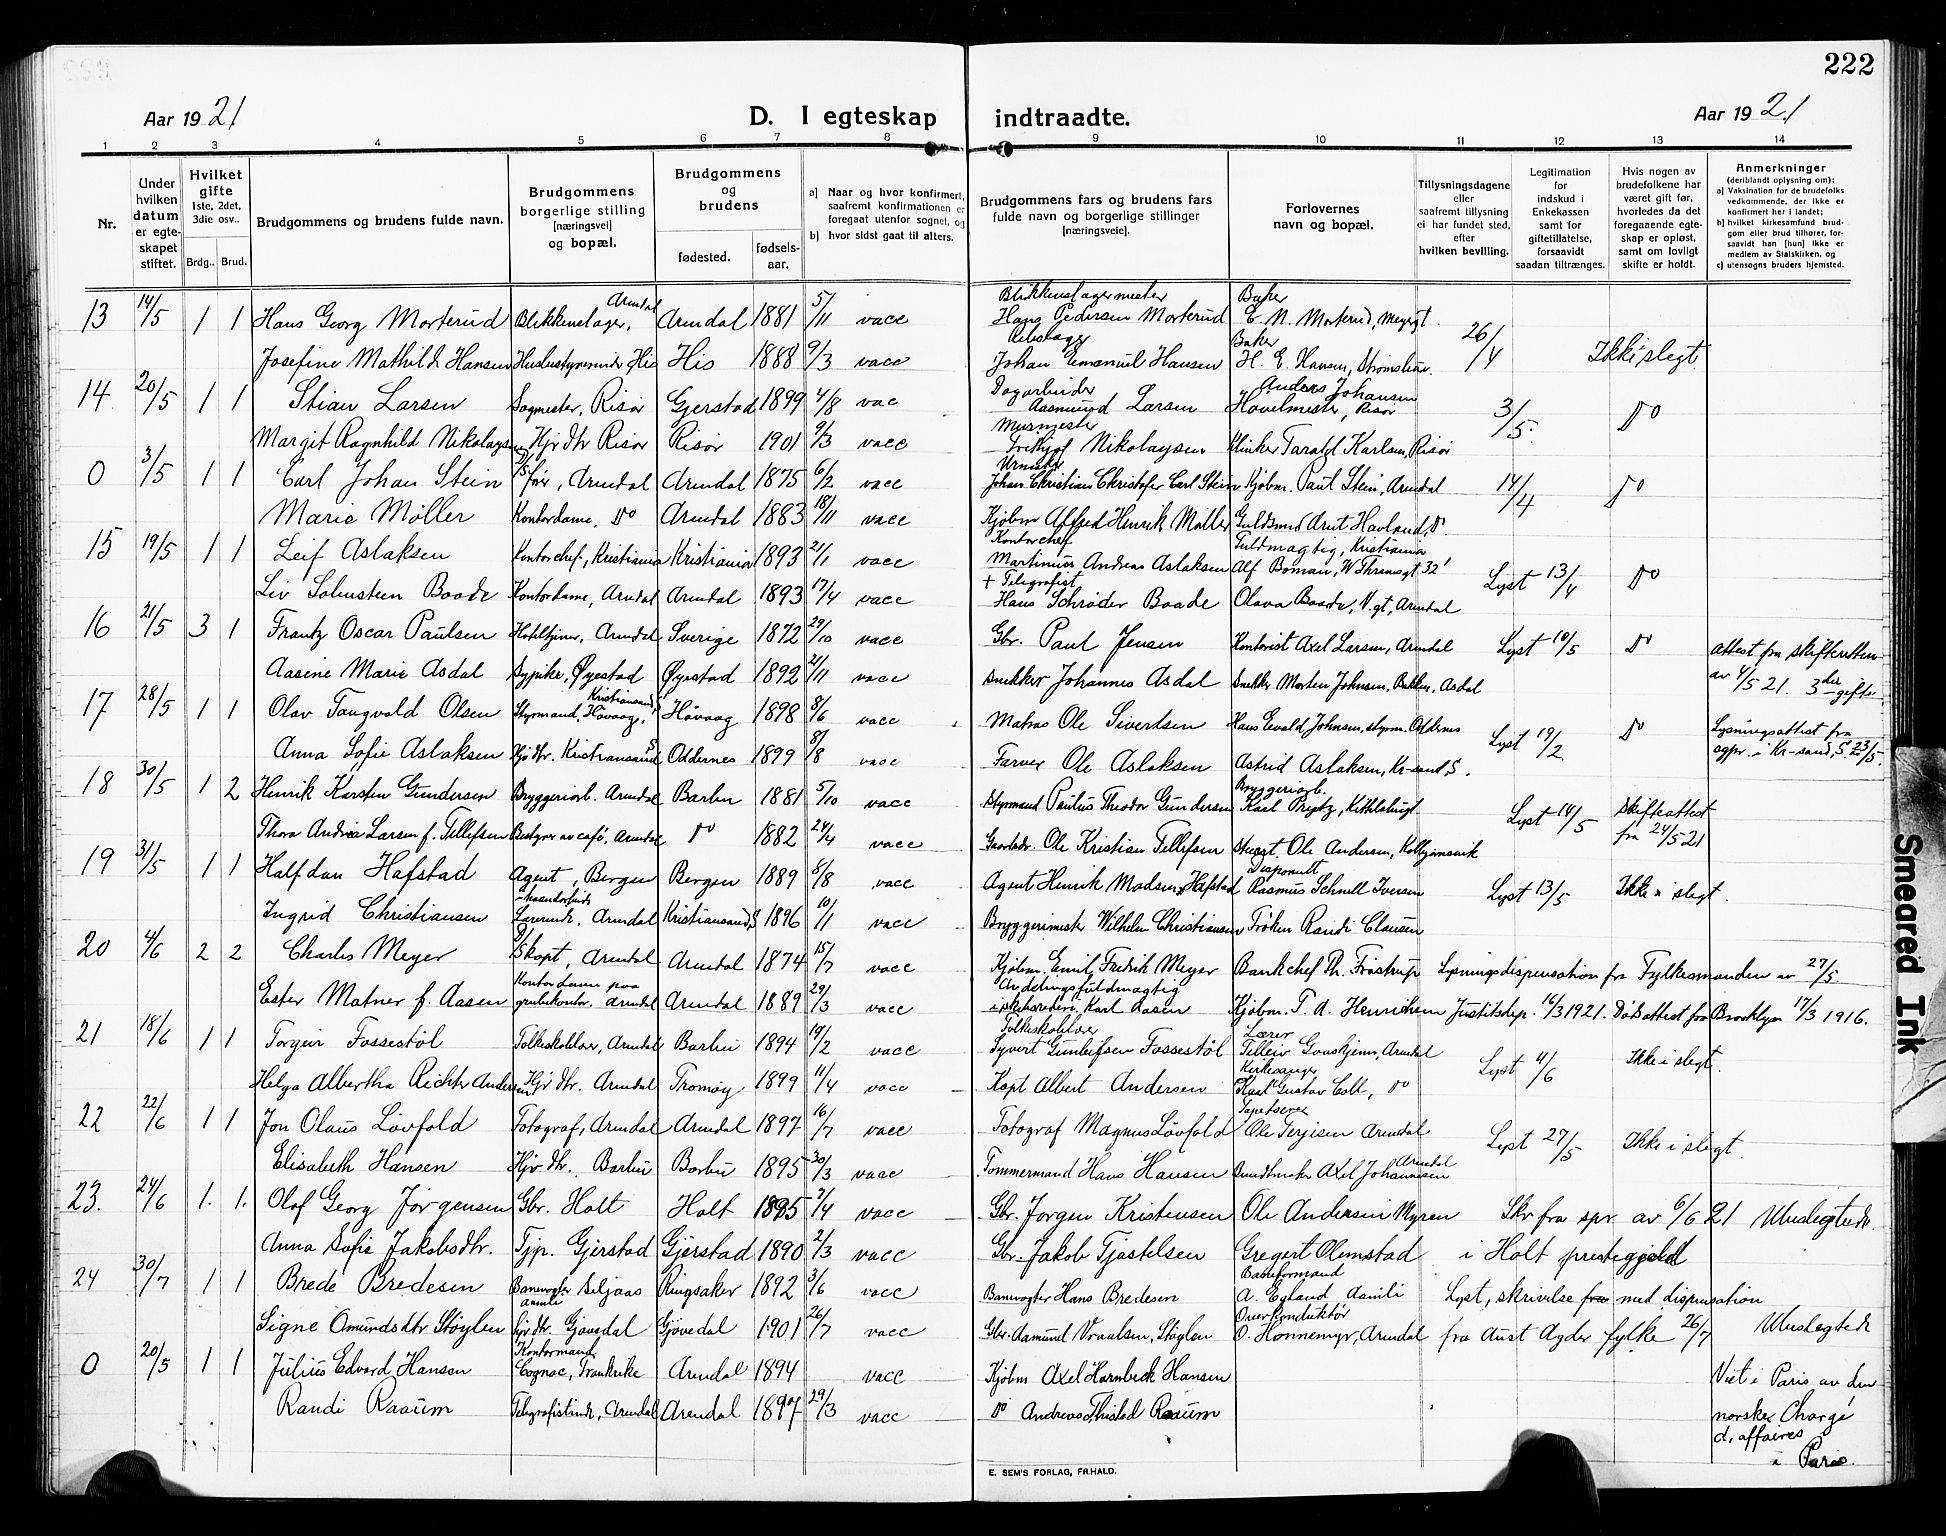 222
Aar 1921 D. I egteskap indtraadte. Aar 1921
1 2 3 4 5 6 7 8 9 10 11 12 13 14
Nr.
Under hvilken datum er egte-skapet stiftet.
Hvilket gifte 1ste, 2det, 3die osv..
Brdg.. Brud.
Brudgommens og brudens fulde navn.
Brudgommens borgerlige stilling [næringsvei] og bopæl.
Brudgommens og brudens
fødested. fødsels-aar.
a) Naar og hvor konfirmert, saafremt konfirmationen er foregaat utenfor sognet, og
b) hvor sidst gaat til alters.
Brudgommens fars og brudens fars fulde navn og borgerlige stillinger [næringsveie].
Forlovernes navn og bopæl.
Tillysningsdagene eller saafremt tillysning ei har fundet sted, efter hvilken bevilling.
Legitimation for indskud i Enkekassen samt for giftetillatelse, forsaavidt saadan tiltrænges.
Hvis nogen av brudefolkene har været gift før, hvorledes da det foregaaende egte-skap er opløst, samt om lovligt skifte er holdt.
Anmerkninger (deriblandt oplysning om): a) Vaksination for de brudefolks vedkommende, der ikke er konfirmert her i landet; b) hvilket kirkesamfund brud-gom eller brud tilhører, for-saavidt han [hun] ikke er medlem av Statskirken, og c) utensogns bruders hjemsted.
13 14/5 1 1 Hans Georg Morterud Blikkenslager, Arendal Arendal 1881 5/11 vacc Blikkenslagermester Hans Pedersen Morterud Baker E. N. Morterud, Meyergt. 26/4 Ikke i slegt
Josefine Mathilde Hansen Husbestyrerinde His His 1888 9/3 vacc Johan Emanuel Hansen Baker H. E. Hansen, Strømsbu
14 20/5 1 1 Stian Larsen Sagmester, Risør Gjerstad 1899 4/8 vac Dagarbeider Aasmund Larsen Anders Johansen Høvelmester, Risør 3/5. Do
Margit Ragnhild Nikolaysen Hjv. dtr Risør Risør 1901 9/3 vacc Murmester Fredtjof Nikolaysen Klinker Tarald Karlsen, Risør
0 3/5 1 1 Carl Johan Stein Arendal Arendal 1875 6/2 vacc Urmaker Johan Christian Christofer Carl Stein Kjøbm. Paul Stein, Arendal 14/4 Do
Marie Møller Kontordame, Do Arendal 1883 18/11 vacc Kjøbm Alfred Henrik Møller Guldsmed Arnt Havland, Do.
15 19/5 1 1 Leif Aslaksen Kontorchef, Kristiania Kristiania 1893 21/1 vacc Kontorchef Martinius Andreas Aslaksen Fuldmægtig, Kristiania Alf Boman, W. Thranesgt 32 Lyst 13/4 Do
Liv Solensteen Baade Kontordame, Arendal Arendal 1893 17/4 vacc + Telegrafist Hans Schrøder Baade Olava Baade, V.gt, Arendal
16 21/5 3 1 Frantz Oscar Paulsen Hoteltjener, Arendal Sverige 1872 29/10 vacc Gbr. Paul Jensen Kontorist Axel Larsen, Arendal Lyst 10/5 Do attest fra skifteretten
Aasine Marie Asdal Sypike, Øyestad Øyestad 1892 21/11 vacc Snekker Johannes Asdal Snekker Morten Johnsen, Bakken, Asdal av 4/5 21. 3die gifte
17 28/5 1 1 Olav Tangvald Olsen Styrmand, Høvaag, Kristiansand Høvaag 1898 8/6 vacc Matros Ole Sivertsen Hans Evald Johnsen, styrm. Oddernes Lyst 19/2 Do Lysningsattest fra
Anna Sofie Aslaksen Hjv dtr. Kristiansand S Oddernes 1899 8/8 vacc Farver Ole Aslaksen Astrid Aslaksen, Kr-sand, S. sgpr. i Kr-sand, S. 23/5.
18 30/5 1 2 Henrik Karsten Gundersen Bryggeriarb. Arendal Barbu 1881 5/10 vacc Styrmand Paulus Theodor Gundersen Bryggeriarb. Karl Pretz, Kittelsbugt. Lyst 14/5 Skifteattest
Thora Andrea Larsen f. Tellefsen Bestyrer av café, Arendal Do 1882 24/4 vacc Gaardbr. Ole Kristian Tellefsen Ole Andersen, Kolbjørnsvik fra 24/5 21
19 31/5 1 1 Halfdan Hafstad Agent, Bergen Bergen 1889 8/8 vacc Agent Henrik Madsen Hafstad Disponent Rasmus Schnell Iversen Lyst 13/5 Ikke i slegt.
Ingrid Christiansen Lærerinde, Arendal Kristiansand, S 1896 10/11 vacc Bryggerimester Wilhelm Christiansen Frøken Randi Clausen
20 4/6 2 2 Charles Meyer Skpt, Arendal Arendal 1874 15/7 vacc Kjøbm. Emil Fredrik Meyer Bankchef Th. Frøstrup Lysningsdispensation fra Fylkesmanden av 27/5.
Ester Matner f. Aasen Kontordame paa grubekontor. Arendal Arendal 1889 29/3 vacc Avdelingsfuldmægtig Karl Aasen Kjøbm. T. A. Henrichsen Justitsdep. 16/3 1921. Dødsattest fra Brooklyn 17/3 1916.
21 18/6 1 1 Torgeir Fossestøl Folkeskolelærer, Arendal Barbu 1894 19/2 vacc Folkeskolelærer Syvert Gunleifsen Fossestøl Lærer Tilleiv Gaaskjenn, Arendal Lyst 4/6 Ikke i slegt.
Helga Albertha Richter Andersen Hjv dtr. Arendal Tromøy 1899 11/4 vacc Kapt Albert Andersen Kirkesanger Karl Gustav Coll, Do
22 22/6 1 1 Jon Olaus Løvfold Fotograf, Arendal Arendal 1897 16/7 vacc Fotograf Magnus Løvfold Tapetserer Ole Terjesen Arendal Lyst 27/5 Ikke i slegt.
Elisabeth Hansen Hjv dtr. Barbu Barbu 1895 30/3 vacc Tømmermand Hans Hansen Bundtmaker Axel Johannesen Arendal
23. 24/6 1. 1. Olaf Georg Jørgensen Gbr. Holt Holt 1895 2/4 vacc Gbr. Jørgen Kristensen Ole Andersen Myren Skr fra spr av 6/6 21 Ubeslegtede.
Anna Sofie Jakobsdtr. Tjp. Gjerstad Gjerstad 1890 2/3 vacc Gbr. Jakob Tjøstelsen Gregert Olmstad i Holt prestegjeld
24 30/7 1 1 Brede Bredesen Banevogter Seljaas Aamli Ringsaker 1892 3/6 vacc Banevogter Hans Bredesen Baneformand A. Egland Aamli Lyst, skrivelse fra med dispensation
Signe Omundsdtr Støylen Hjv dtr. Gjøvedal Gjøvedal 1901 26/7 vacc Gbr. Aamund Vraalsen, Støylen Overkonduktør O. Honnemyr, Arendal fra Aust Agder fylke 26/7 Ubeslegtede
0 20/5 1 1 Julius Edvard Hansen Kontormand Cognac, Frankrike Arendal 1894 vacc Kjøbm Axel Harnbeck Hansen Viet i Paris av den
Randi Raaum Telegrafistinde, Arendal Arendal 1897 29/3 vacc Do Andreas Thistad Raaum norske Chargé
d, affaires
i Paris.
E. SEM'S FORLAG, FR.HALD.
Smeared Ink